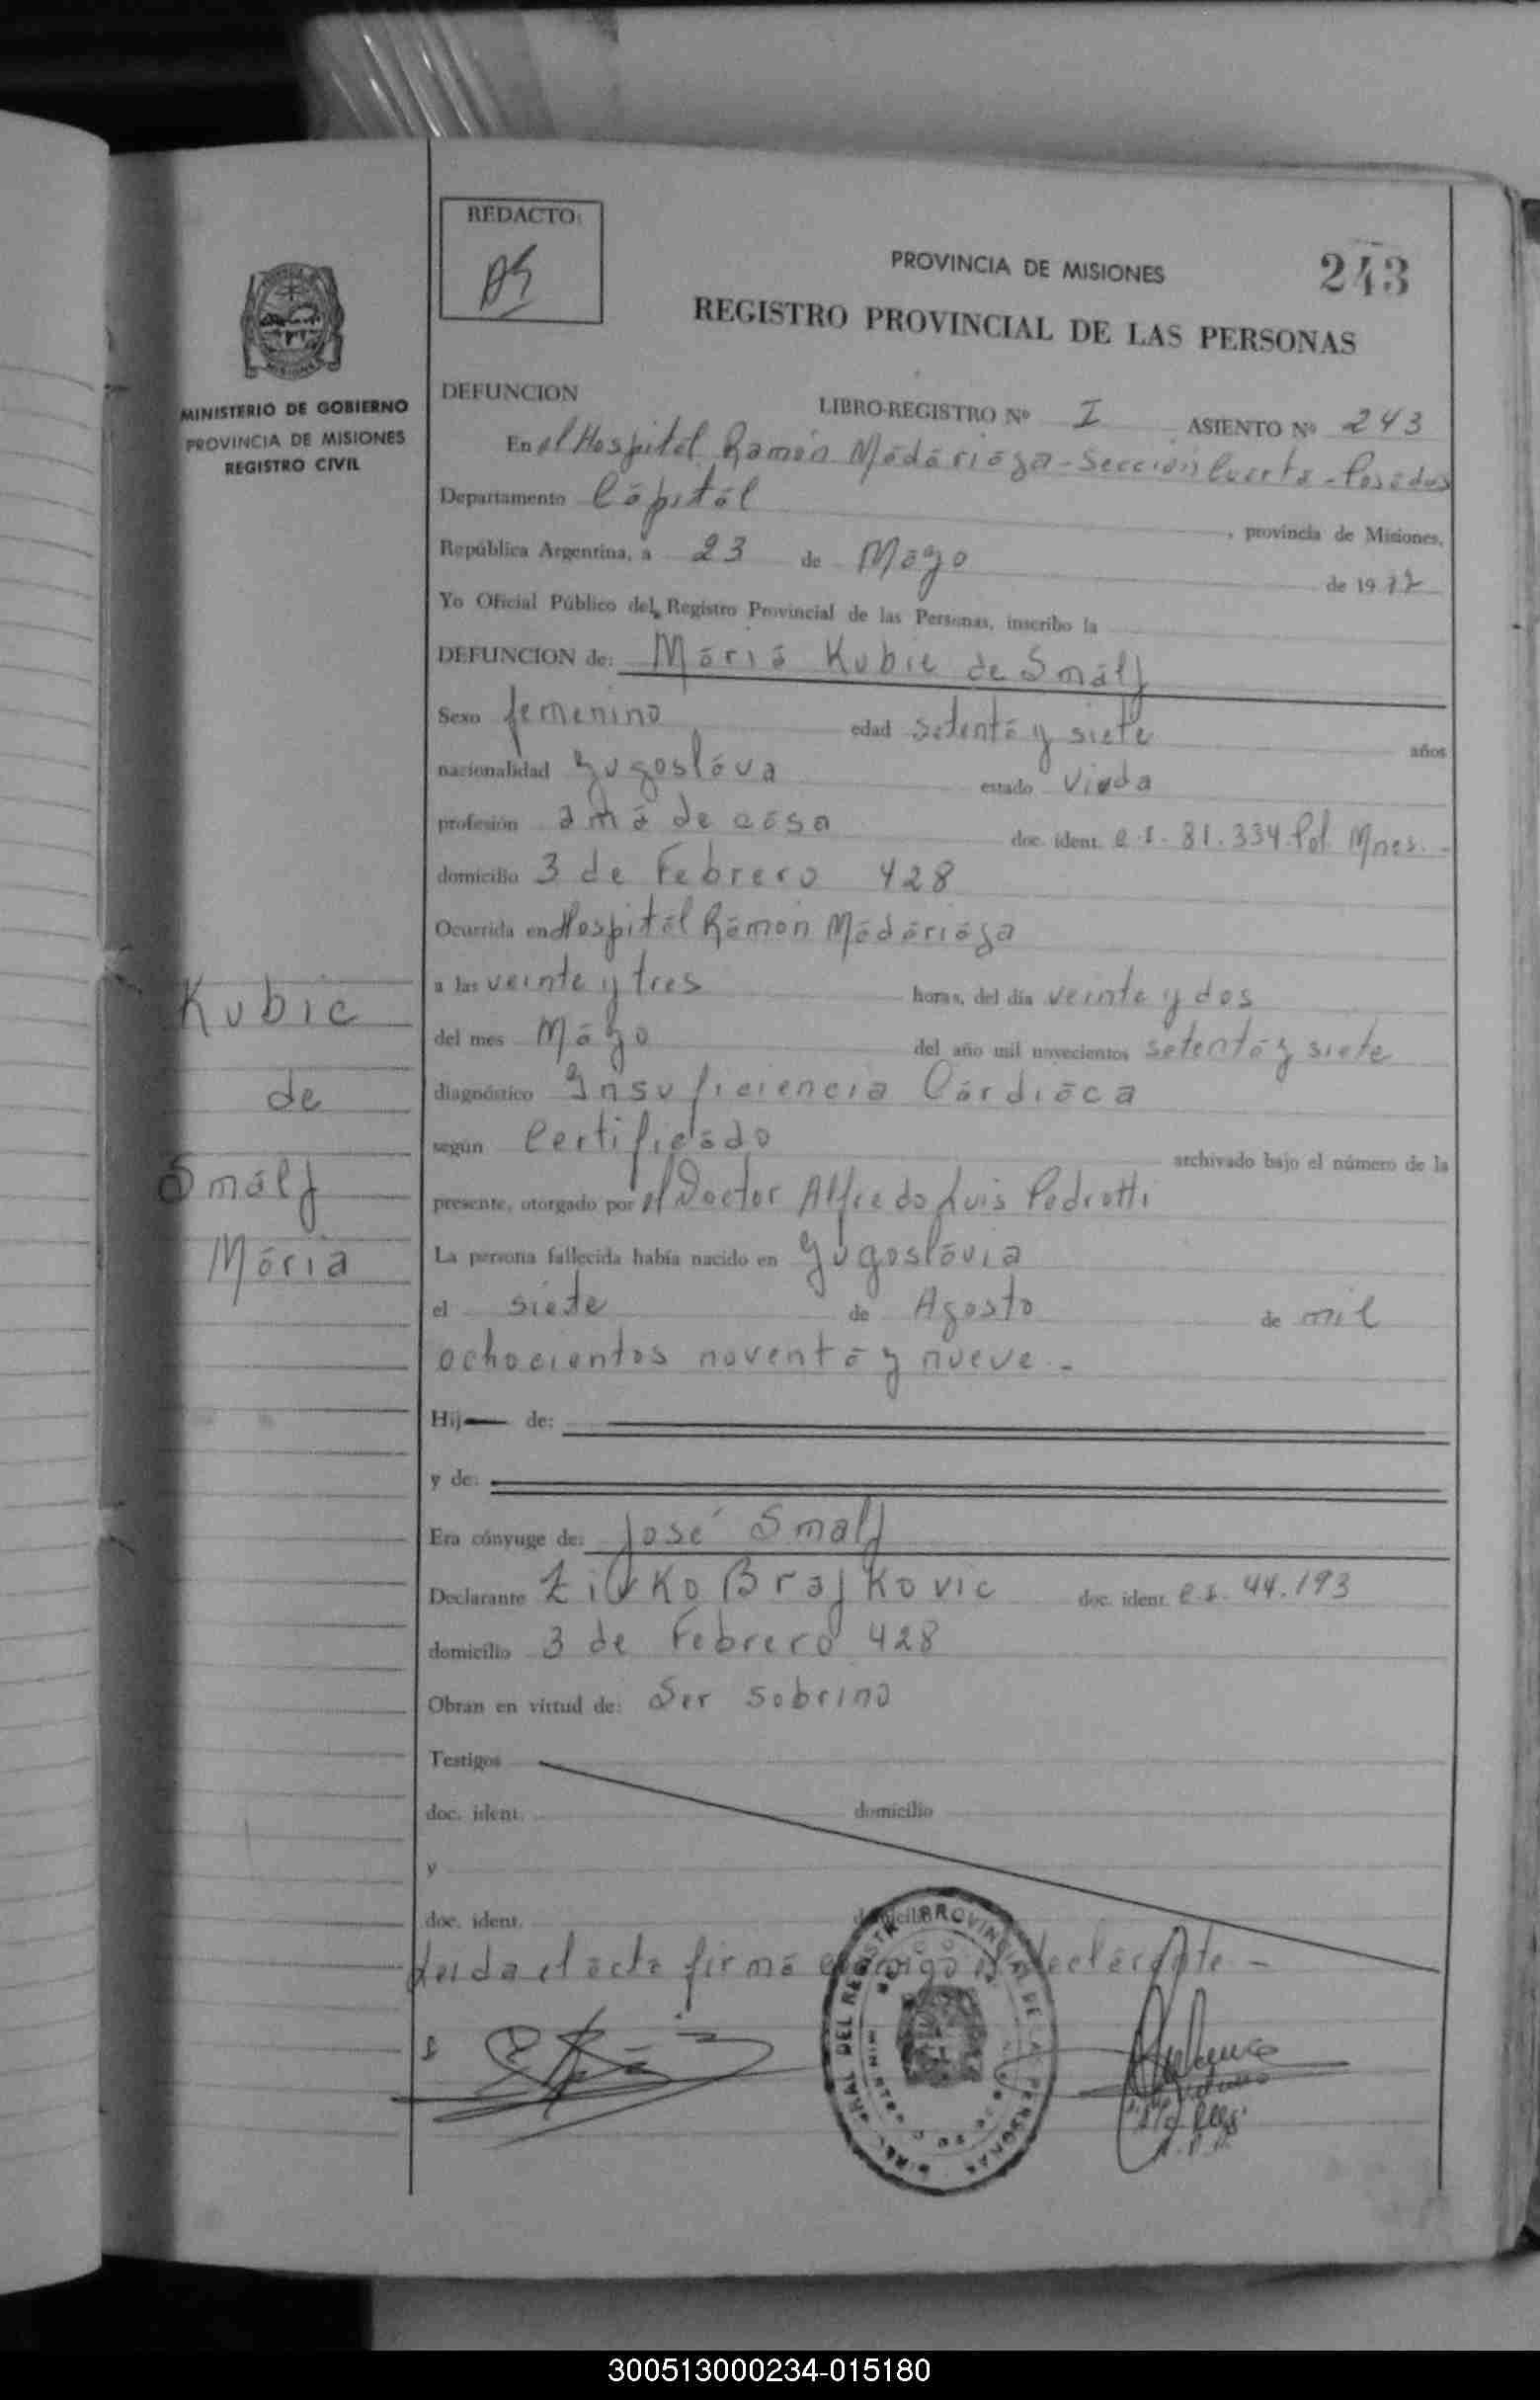 REDACTO:
PROVINCIA DE MISIONES
243
REGISTRO PROVINCIAL DE LAS PERSONAS
MINISTERIO DE GOBIERNO
PROVINCIA DE MISIONES
REGISTRO CIVIL
DEFUNCION
LIBRO-REGISTRO Nº I ASIENTO Nº 243
En el Hospital Ramón Madariaga - Sección Puerto - Posadas
Departamento Capital, provincia de Misiones,
República Argentina, a 23 de Mayo de 1977
Yo Oficial Público del Registro Provincial de las Personas, inscribo la
DEFUNCION de: María Kubic de Smalj
Sexo femenino edad setenta y siete años
nacionalidad Yugoslava estado Viuda
profesión ama de casa doc. ident. C.I. 81.334 Pol Mnes.-
domicilio 3 de Febrero 428
Ocurrida en Hospital Ramón Madariaga
a las veinte y tres horas, del día veinte y dos
del mes Mayo del año mil novecientos setenta y siete
diagnóstico Insuficiencia Cardiaca
según Certificado archivado bajo el número de la
presente, otorgado por el Doctor Alfredo Luis Pedrotti
La persona fallecida había nacido en Yugoslavia
el siete de Agosto de mil
ochocientos noventa y nueve.-
Hij de:
y de:
Era cónyuge de: José Smalj
Declarante Zivko Brajkovic doc. ident. C.I. 44.193
domicilio 3 de Febrero 428
Obran en virtud de: Ser sobrino
Testigos
doc. ident. domicilio
y
doc. ident. domicilio
Leida el acta firma conmigo el declarante -
Kubic
de
Smalj
María
300513000234-015180